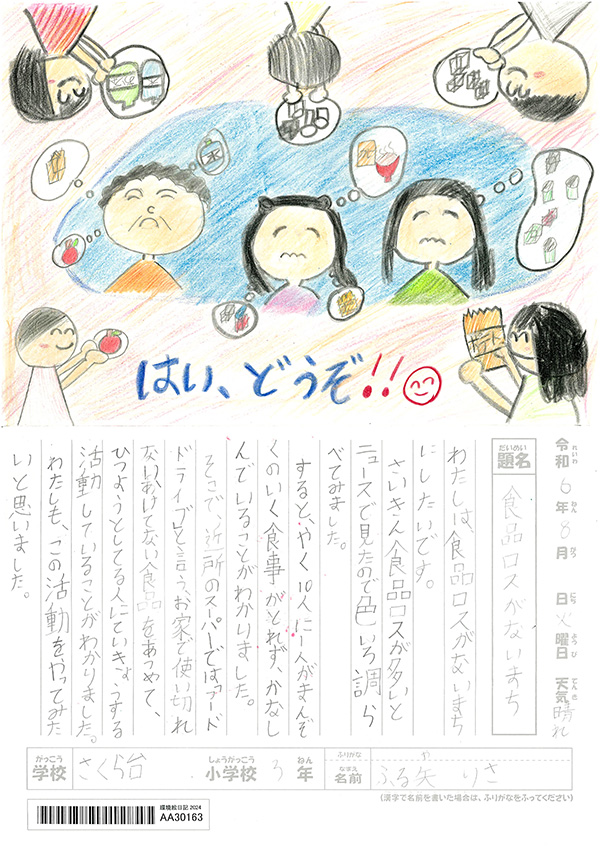 はい、どうぞ!!
令和6年8月 日火曜日 天気晴れ
れいわ ねん がつ にち よう び てんき
だいめい
題名 食品ロスがないまち
わたしは、食品ロスがないまち
にしたいです。
さいきん食品ロスが多いと
ニュースで見たので色いろ調ら
べてみました。
すると、やく10人に1人がまんぞ
くのいく食事がとれず、かなし
んでいることがわかりました。
そこで、近所のスーパーでは、フード
ドライブと言う、お家で使い切れ
ない、あけてない食品をあつめて、
ひつようとしてる人にていきょうする
活動していることがわかりました。
わたしも、この活動をやってみた
いと思いました。
がっこう しょうがっこう ねん ふりがな や
学校 さくら台 小学校 3年 なまえ 名前 ふる矢 りさ
(漢字で名前を書いた場合は、ふりがなをふってください)
環境絵日記 2024
AA30163